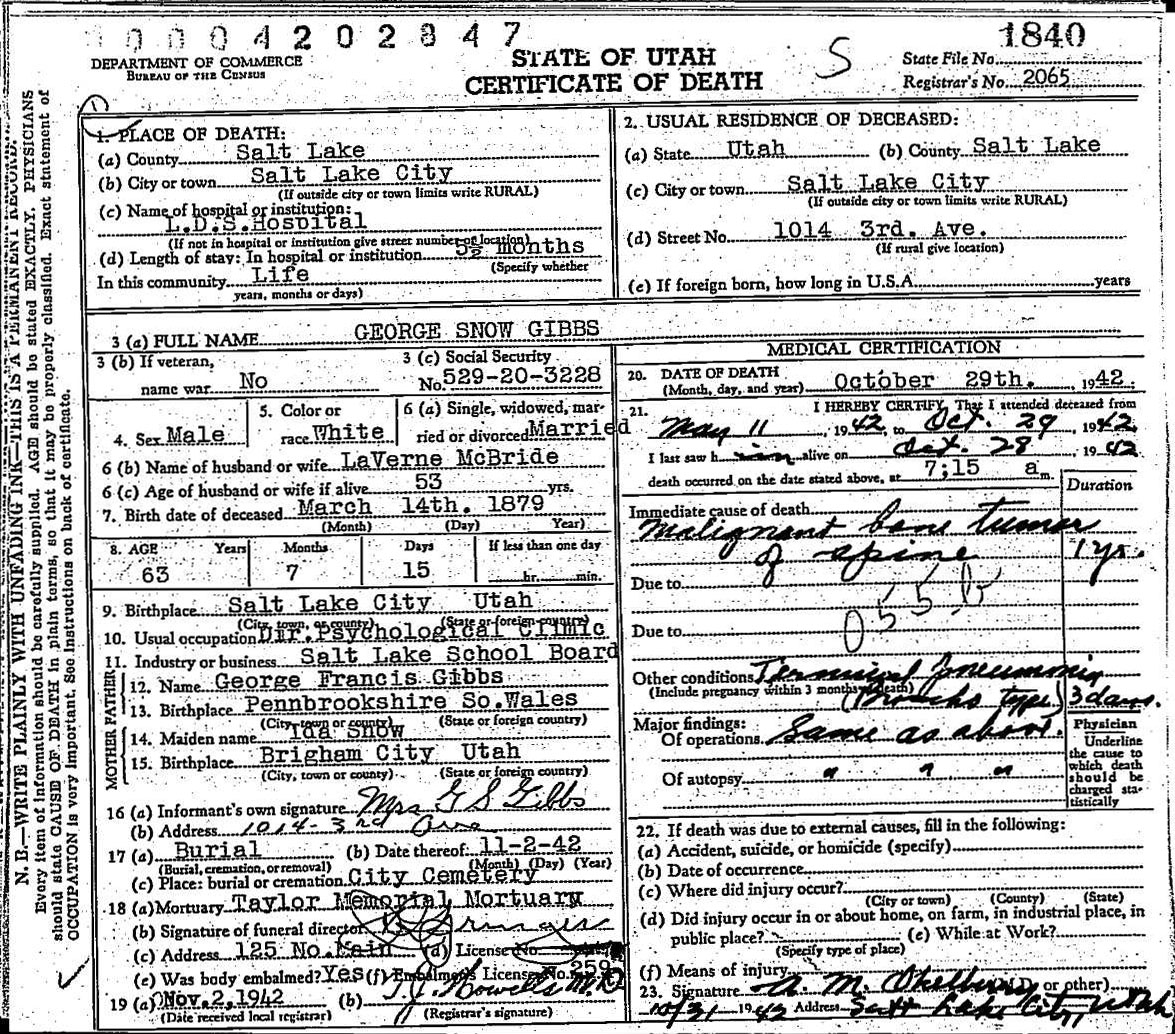 00004202847
DEPARTMENT OF COMMERCE
BUREAU OF THE CENSUS
STATE OF UTAH
CERTIFICATE OF DEATH
S
1840
State File No.
Registrar's No. 2065
N. B.—WRITE PLAINLY WITH UNFADING INK—THIS IS A PERMANENT RECORD.
Every item of information should be carefully supplied. AGE should be stated EXACTLY. PHYSICIANS
should state CAUSE OF DEATH in plain terms, so that it may be properly classified. Exact statement of
OCCUPATION is very important. See instructions on back of certificate.
1. PLACE OF DEATH:
(a) County Salt Lake
(b) City or town Salt Lake City
(If outside city or town limits write RURAL)
(c) Name of hospital or institution:
L.D.S. Hospital
(If not in hospital or institution give street number or location)
(d) Length of stay: In hospital or institution 5½ months
(Specify whether
In this community Life
years, months or days)
2. USUAL RESIDENCE OF DECEASED:
(a) State Utah (b) County Salt Lake
(c) City or town Salt Lake City
(If outside city or town limits write RURAL)
(d) Street No. 1014 3rd. Ave.
(If rural give location)
(e) If foreign born, how long in U.S.A. years
3 (a) FULL NAME GEORGE SNOW GIBBS
3 (b) If veteran,
name war No
3 (c) Social Security
No. 529-20-3228
4. Sex Male
5. Color or
race White
6 (a) Single, widowed, mar-
ried or divorced Married
6 (b) Name of husband or wife LaVerne McBride
6 (c) Age of husband or wife if alive 53 yrs.
7. Birth date of deceased March 14th. 1879
(Month) (Day) Year)
8. AGE Years Months Days If less than one day
63 7 15 hr. min.
9. Birthplace Salt Lake City Utah
(City, town, or county) (State or foreign country)
10. Usual occupation Dir. Psychological Clinic
11. Industry or business Salt Lake School Board
FATHER
12. Name George Francis Gibbs
13. Birthplace Pennbrookshire So. Wales
(City, town or county) (State or foreign country)
MOTHER
14. Maiden name Ida Snow
15. Birthplace Brigham City Utah
(City, town or county) (State or foreign country)
16 (a) Informant's own signature Mrs G S Gibbs
(b) Address 1014-3rd Ave
17 (a) Burial (b) Date thereof: 11-2-42
(Burial, cremation, or removal) (Month) (Day) (Year)
(c) Place: burial or cremation City Cemetery
18 (a) Mortuary Taylor Memorial Mortuary
(b) Signature of funeral director
(c) Address 125 No. Main (d) License No.
(e) Was body embalmed? Yes (f) Embalmer's License No. 259
19 (a) Nov. 2, 1942 (b) T. J. Howells M.D
(Date received local registrar) (Registrar's signature)
MEDICAL CERTIFICATION
20. DATE OF DEATH
(Month, day, and year) October 29th. 1942.
21. I HEREBY CERTIFY, That I attended deceased from
May 11, 1942, to Oct. 29 1942,
I last saw h alive on Oct. 28, 1942
death occurred on the date stated above, at 7;15 a m.
Duration
Immediate cause of death
Malignant bone tumor
of spine 1 yr.
Due to
055 b
Due to
Other conditions Terminal Pneumonia
(Include pregnancy within 3 months of death) (Broncho type) 3 days.
Major findings:
Of operations Same as above.
Of autopsy " " "
Physician
Underline
the cause to
which death
should be
charged sta-
tistically
22. If death was due to external causes, fill in the following:
(a) Accident, suicide, or homicide (specify)
(b) Date of occurrence
(c) Where did injury occur?
(City or town) (County) (State)
(d) Did injury occur in or about home, on farm, in industrial place, in
public place? (e) While at Work?
(Specify type of place)
(f) Means of injury
23. Signature A. M. or other)
10/31 1942 Address Salt Lake City, Utah